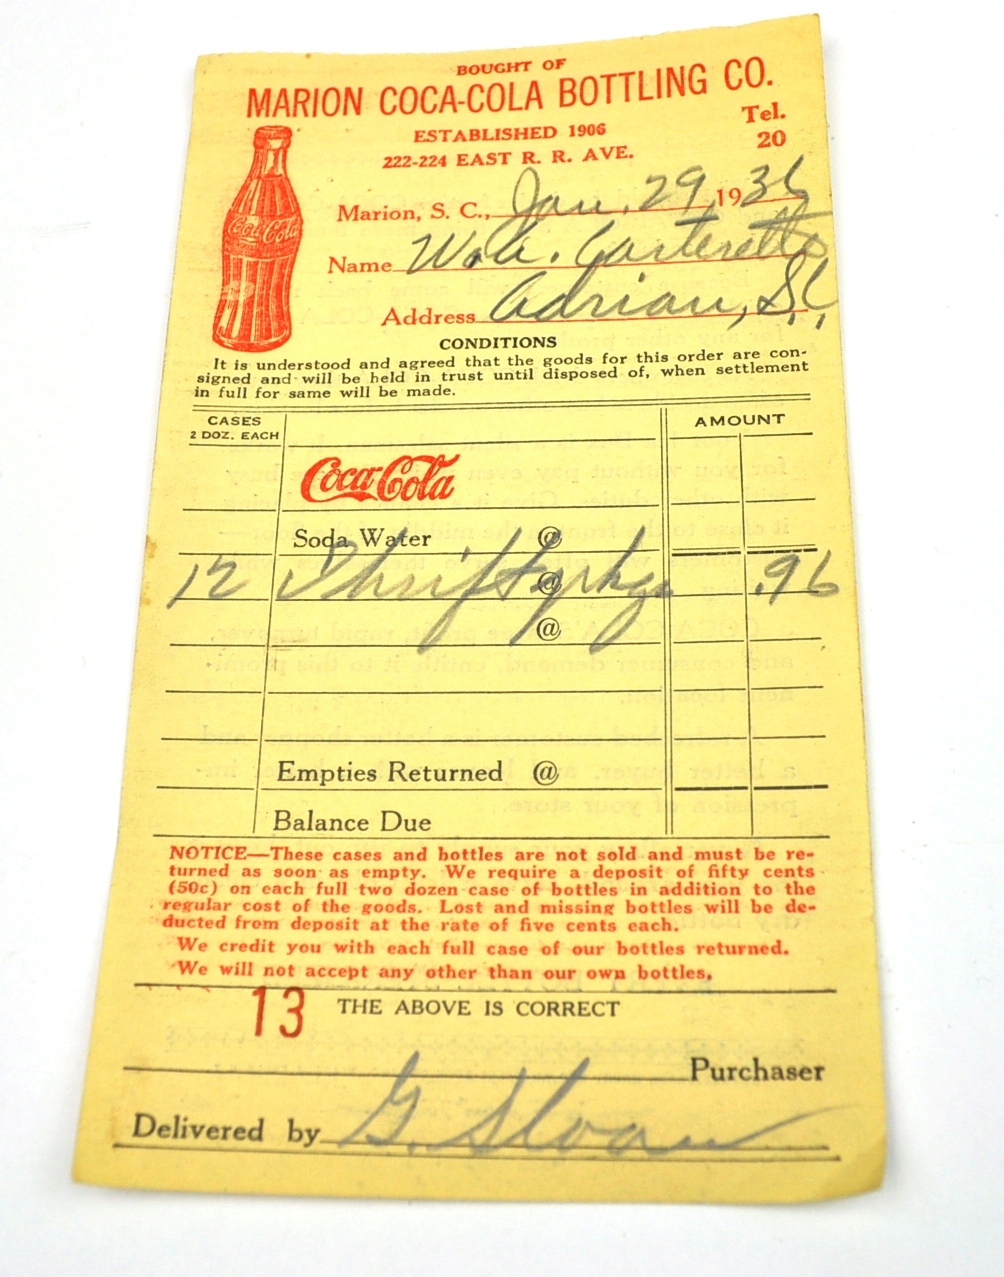 BOUGHT OF
MARION COCA-COLA BOTTLING CO.
ESTABLISHED 1906
Tel.
20
222-224 EAST R. R. AVE.
Coca-Cola
Marion, S. C., Jan. 29, 1936
Name W. A.
Address Adrian, S.C,
CONDITIONS
It is understood and agreed that the goods for this order are con-
signed and will be held in trust until disposed of, when settlement
in full for same will be made.
CASES
2 DOZ. EACH
AMOUNT
Coca-Cola
Soda Water @
12 @ .96
@
Empties Returned @
Balance Due
NOTICE—These cases and bottles are not sold and must be re-
turned as soon as empty. We require a deposit of fifty cents
(50c) on each full two dozen case of bottles in addition to the
regular cost of the goods. Lost and missing bottles will be de-
ducted from deposit at the rate of five cents each.
We credit you with each full case of our bottles returned.
We will not accept any other than our own bottles.
13
THE ABOVE IS CORRECT
Purchaser
Delivered by G. Sloan